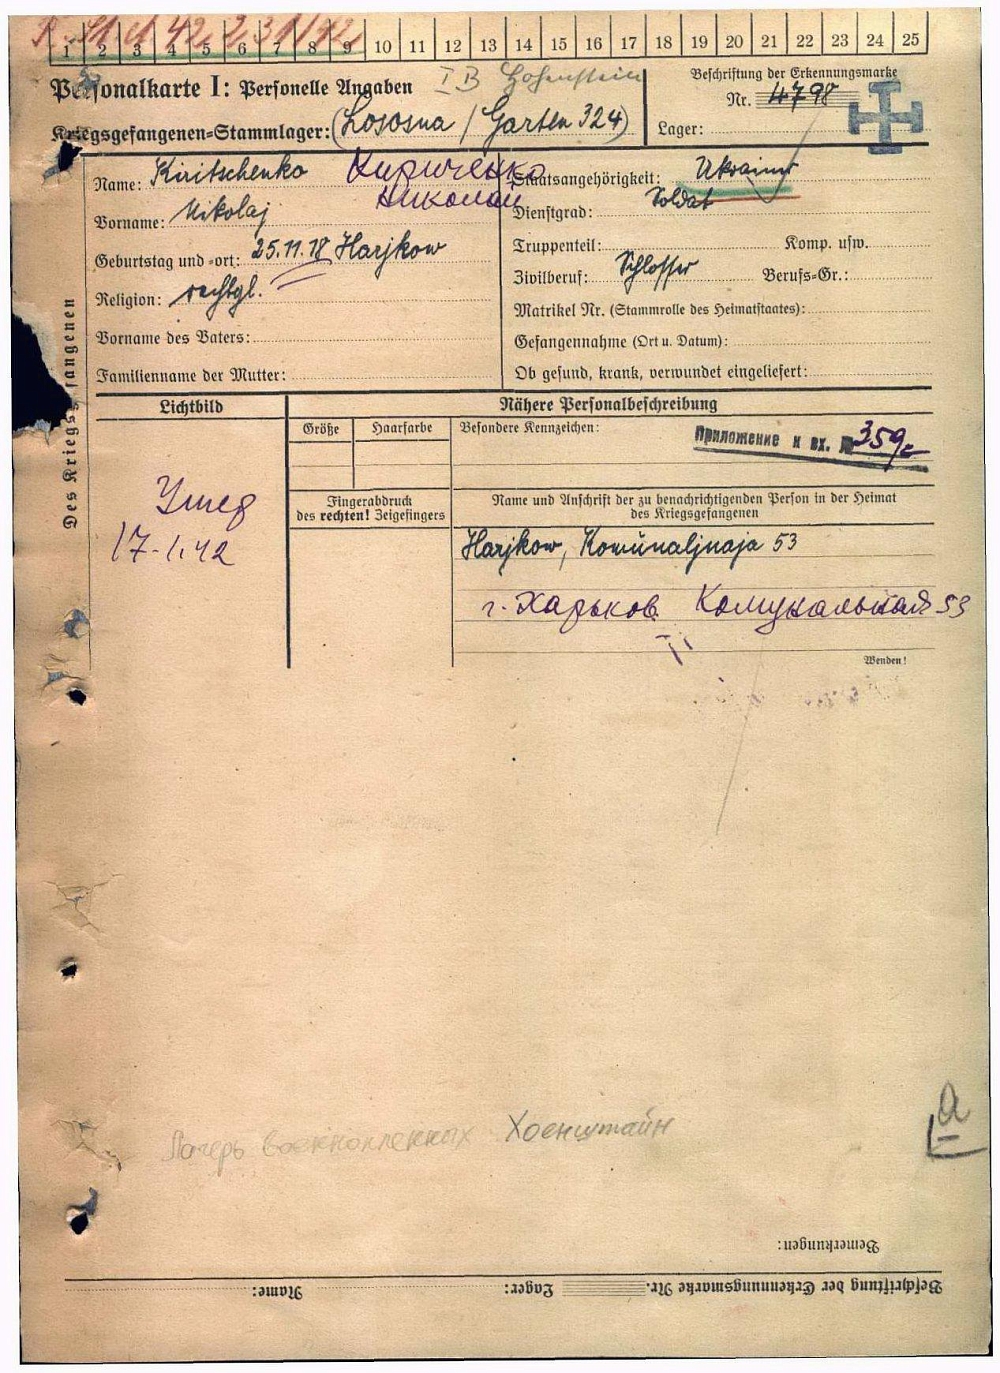 1 2 3 4 5 6 7 8 9 10 11 12 13 14 15 16 17 18 19 20 21 22 23 24 25
Personalkarte I: Personelle Angaben
I B Hohenstein
Beschriftung der Erkennungsmarke
Nr. 4798
Kriegsgefangenen-Stammlager: (Lososna / Garten 324)
Lager:
Des Kriegsgefangenen
Name: Kiritschenko Кириченко
Николай
Vorname: Nikolaj
Geburtstag und -ort: 25.11.18 Harjkow
Religion: rechtgl.
Vorname des Vaters:
Familienname der Mutter:
Staatsangehörigkeit: Ukrainer
Dienstgrad: Soldat
Truppenteil: Komp. usw.
Zivilberuf: Schlosser Berufs-Gr.:
Matrikel Nr. (Stammrolle des Heimatstaates):
Gefangennahme (Ort u. Datum):
Ob gesund, krank, verwundet eingeliefert:
Lichtbild
Nähere Personalbeschreibung
Größe Haarfarbe Besondere Kennzeichen:
Приложение к вх. № 359с
Умер
17.1.42
Fingerabdruck
des rechten! Zeigefingers
Name und Anschrift der zu benachrichtigenden Person in der Heimat
des Kriegsgefangenen
Harjkow, Komunaljnaja 53
г. Харьков Комунальная 53
Wenden!
Лагерь военнопленных Хоенштайн
Bemerkungen:
Beschriftung der Erkennungsmarke Nr. Lager: Name: